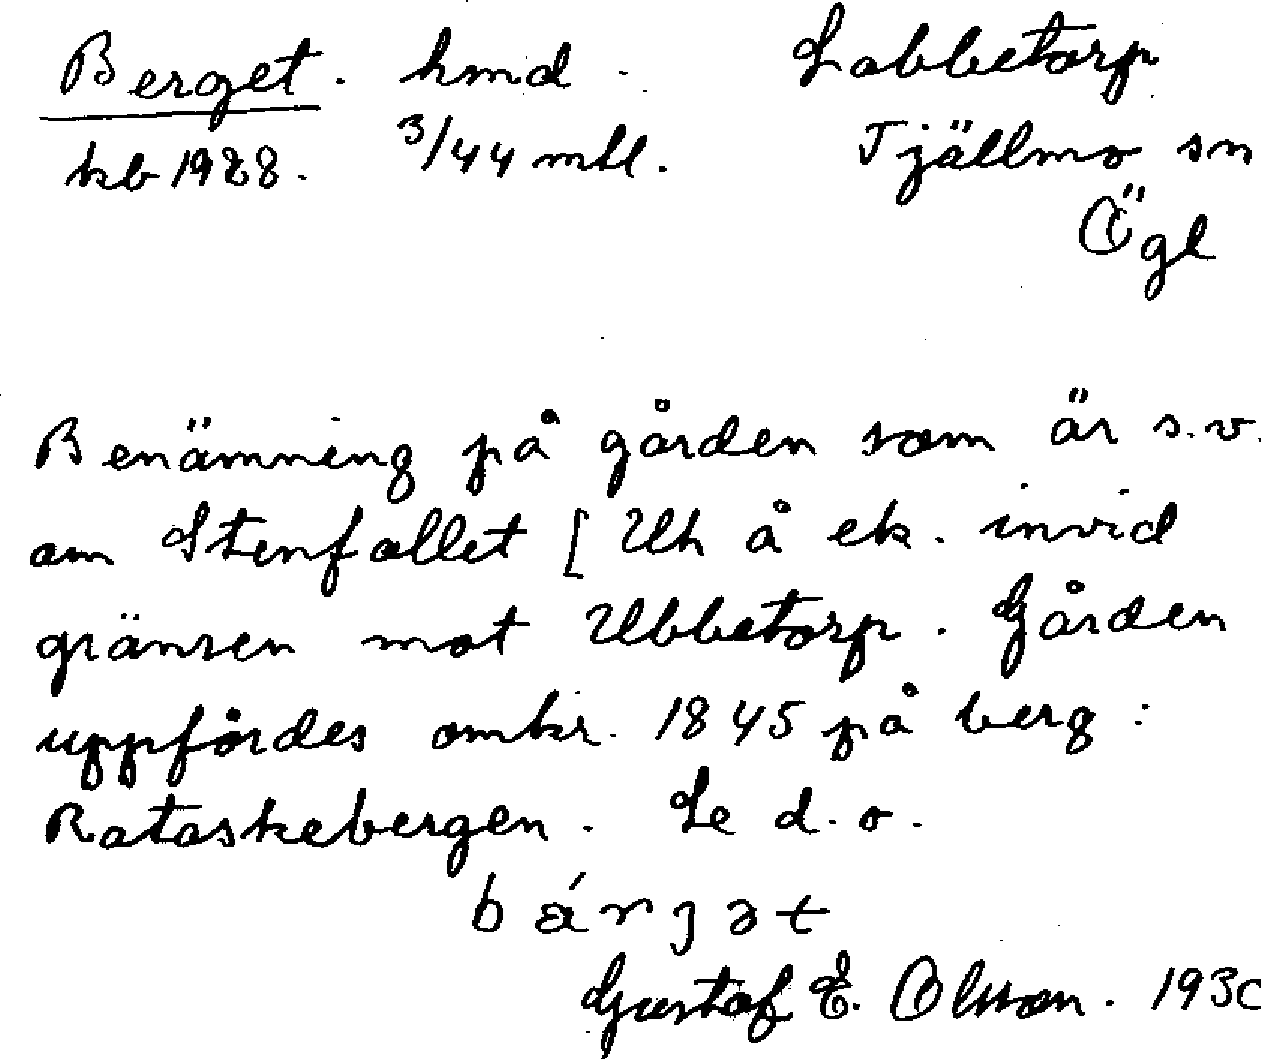 Berget. hmd. Labbetorp
kb 1928. 3/44 mtl. Tjällmo sn
Ögl
Benämning på gården som är s.v.
om Stenfallet [Uh å ek. invid
gränsen mot Ubbetorp. Gården
uppfördes omkr. 1845 på berg:
Rataskebergen. Se d.o.
bárjət
Gustaf E. Olsson. 1930